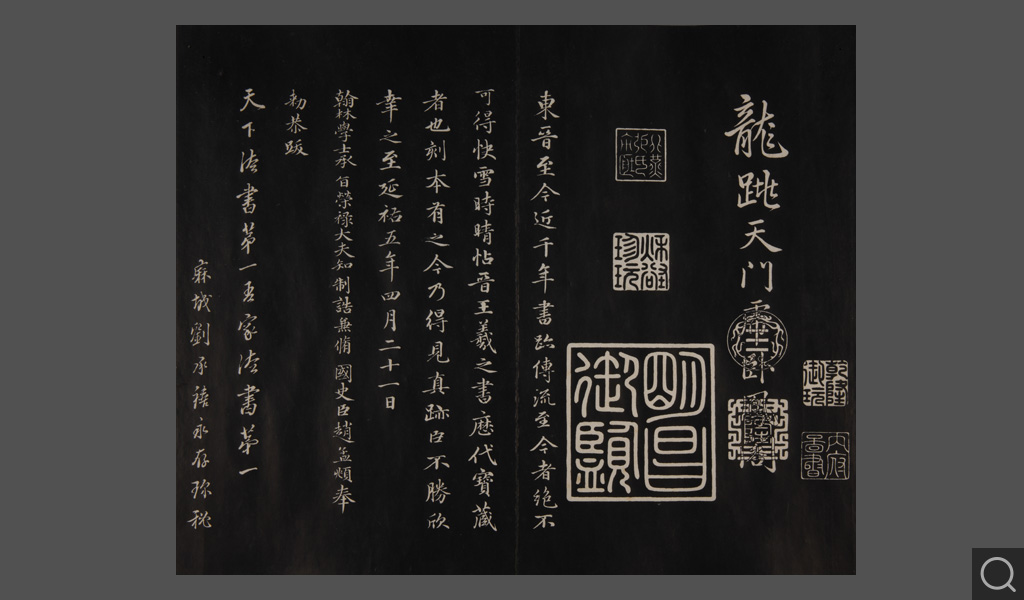 龍跳天門虎卧鳳閣
乾隆御玩
秋壑珍玩
明昌御覽
東晉至今近千年書跡傳流至今者絶不
可得快雪時晴帖晉王羲之書歷代寶藏
者也刻本有之今乃得見真跡臣不勝欣
幸之至延祐五年四月二十一日
翰林學士承旨榮祿大夫知制誥兼脩國史臣趙孟頫奉
勑恭跋
天下法書第一吾家法書第一
麻城劉承禧永存珍秘